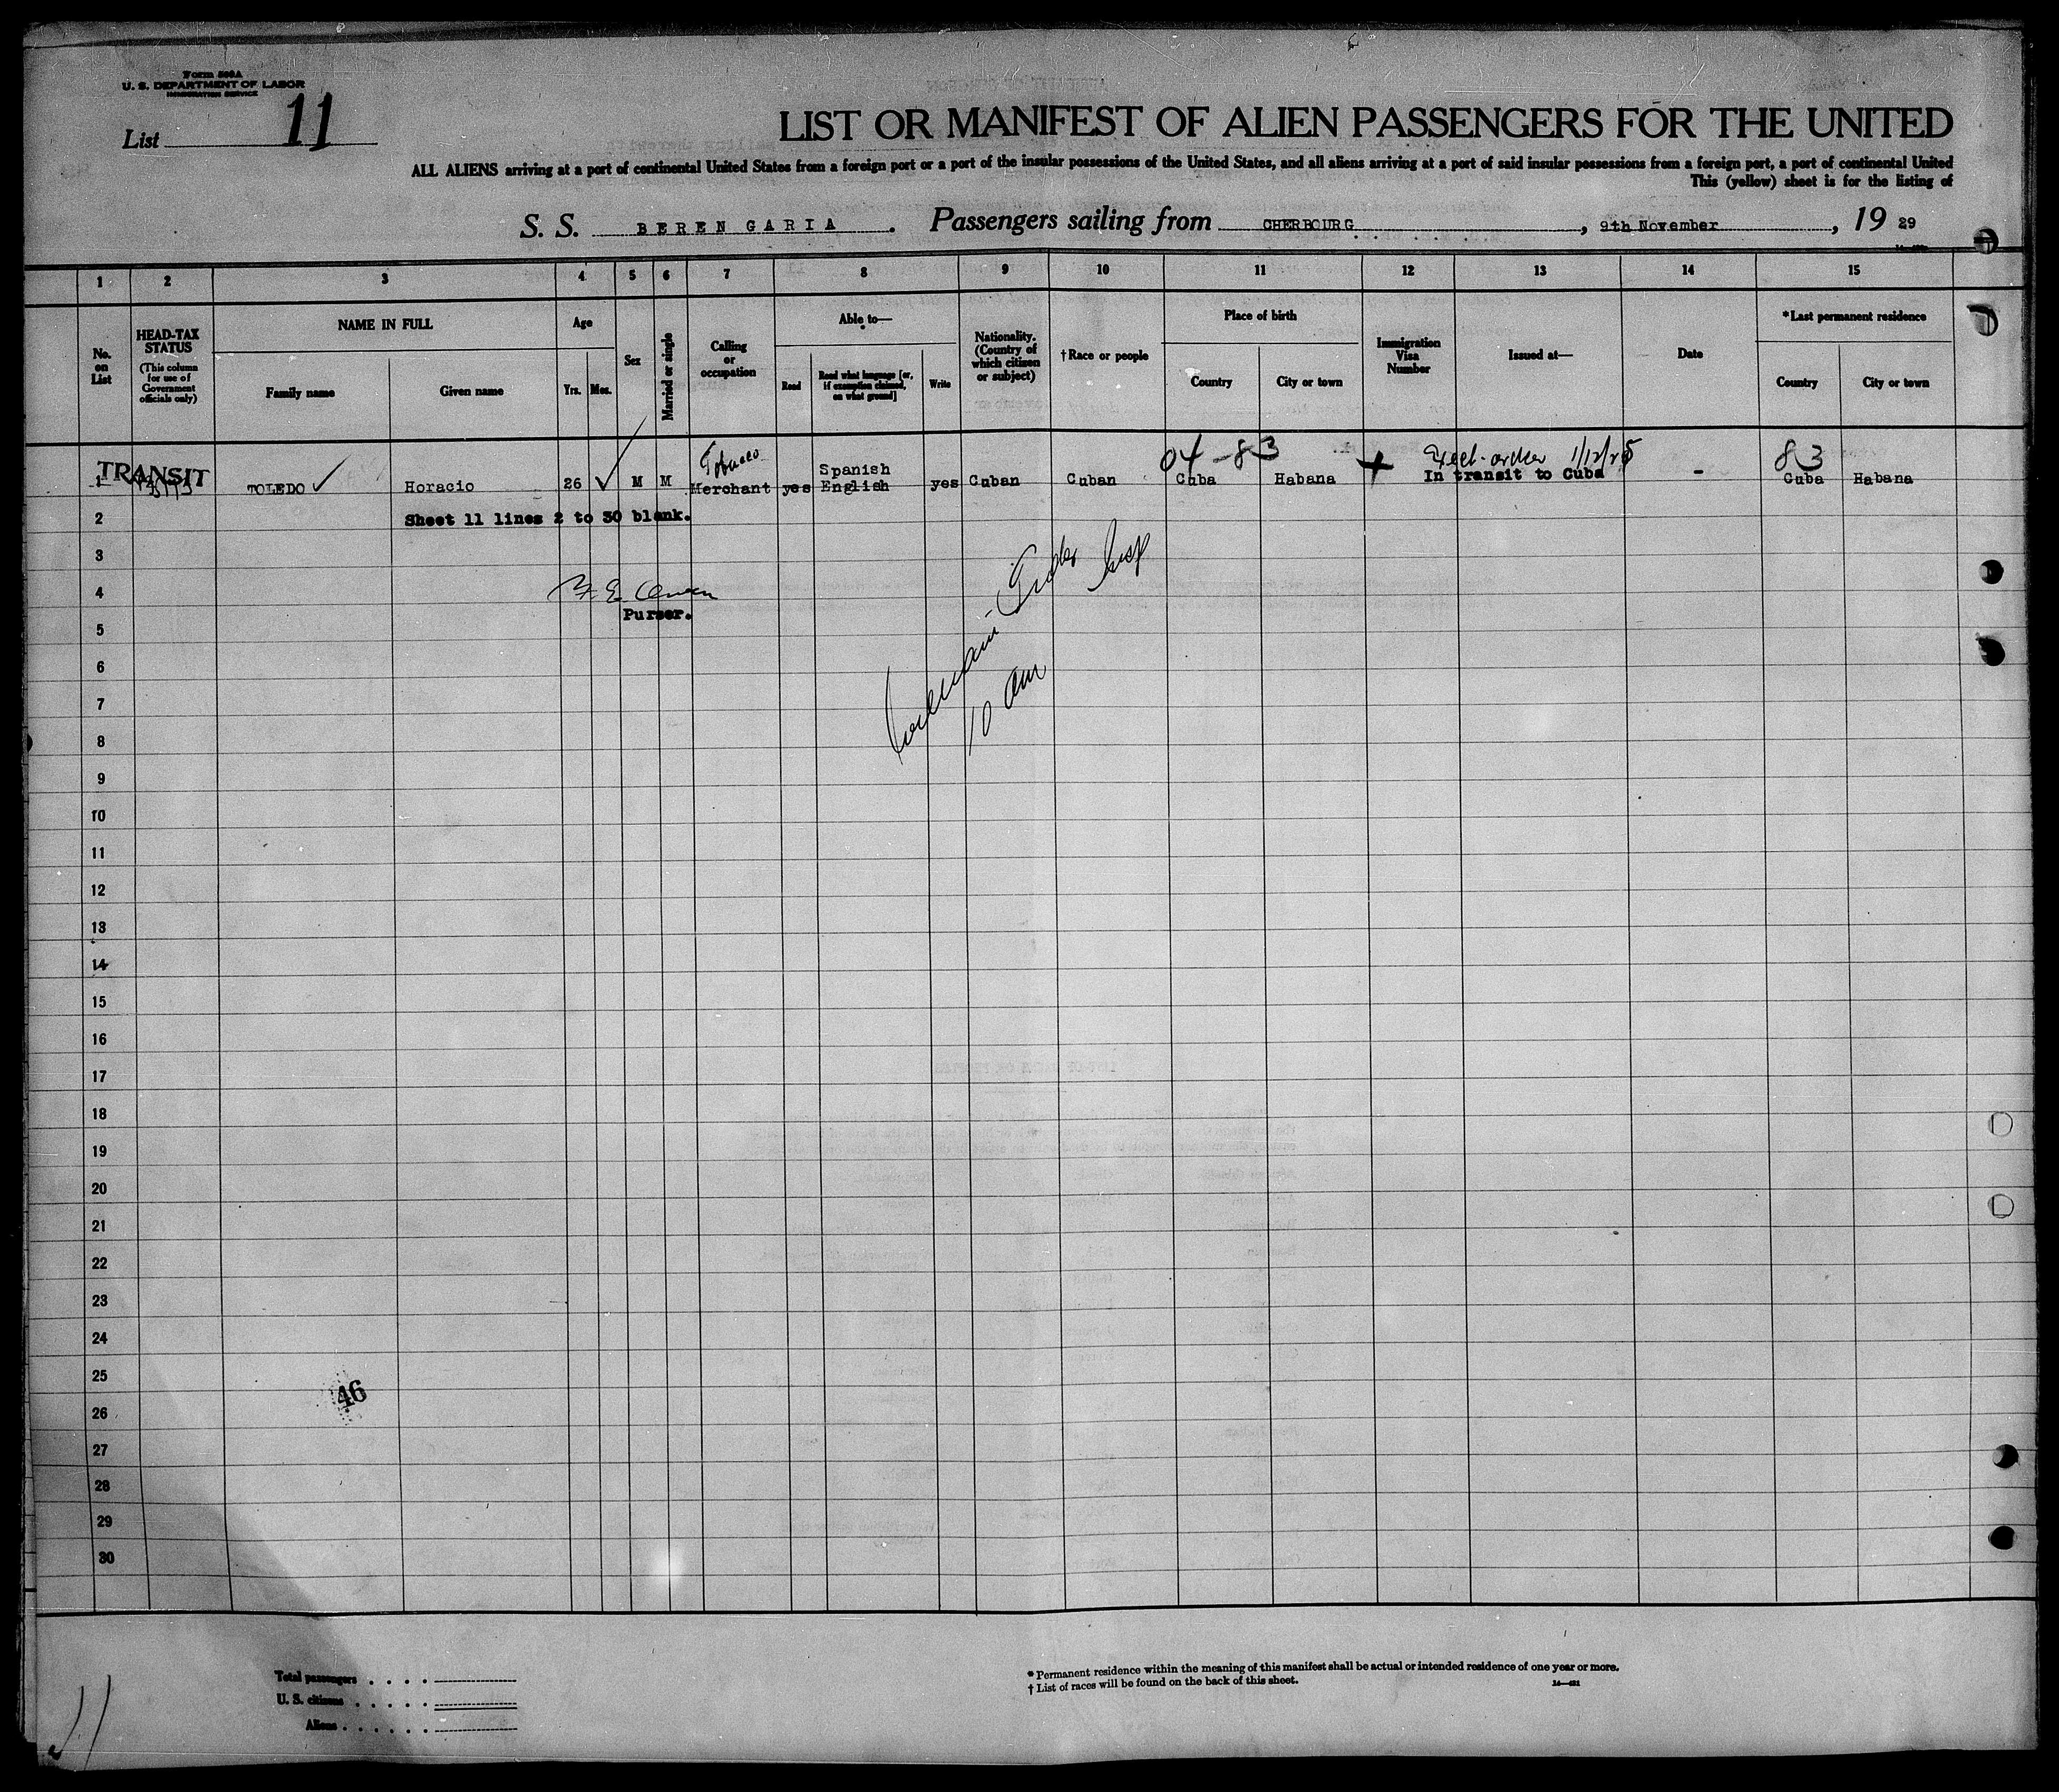 Form 500A
U. S. DEPARTMENT OF LABOR
IMMIGRATION SERVICE
List 11
LIST OR MANIFEST OF ALIEN PASSENGERS FOR THE UNITED
ALL ALIENS arriving at a port of continental United States from a foreign port or a port of the insular possessions of the United States, and all aliens arriving at a port of said insular possessions from a foreign port, a port of continental United
This (yellow) sheet is for the listing of
S. S. BERENGARIA. Passengers sailing from CHERBOURG, 9th November, 19 29
1 2 3 4 5 6 7 8 9 10 11 12 13 14 15
No. on List
HEAD-TAX STATUS
(This column for use of Government officials only)
NAME IN FULL
Family name
Given name
Age
Yrs.
Mos.
Sex
Married or single
Calling or occupation
Able to—
Read
Read what language [or, if exemption claimed, on what ground]
Write
Nationality. (Country of which citizen or subject)
†Race or people
Place of birth
Country
City or town
Immigration Visa Number
Issued at—
Date
*Last permanent residence
Country
City or town
TRANSIT
Tobacco 04-83 1/12/25 83
1 TOLEDO Horacio 26 M M Merchant yes Spanish English yes Cuban Cuban Cuba Habana In transit to Cuba - Cuba Habana
2 Sheet 11 lines 2 to 30 blank.
3
4
Purser.
5
6
10 am
7
8
9
10
11
12
13
14
15
16
17
18
19
20
21
22
23
24
25
46
26
27
28
29
30
Total passengers
U. S. citizens
Aliens
* Permanent residence within the meaning of this manifest shall be actual or intended residence of one year or more.
† List of races will be found on the back of this sheet.
11